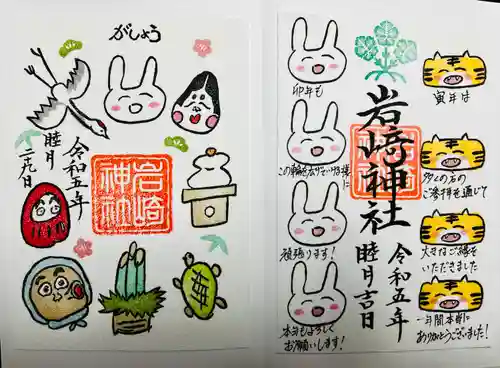 がしょう
令和五年
睦月
二九日
岩﨑
神社
岩﨑神社
令和五年
睦月吉日
寅年は
多くの方の
ご参拝を通じて
大きなご縁を
いただきました
一年間本当に
ありがとうございました!
卯年も
この輪を広げていける様に
頑張ります!
本年もよろしく
お願いします!